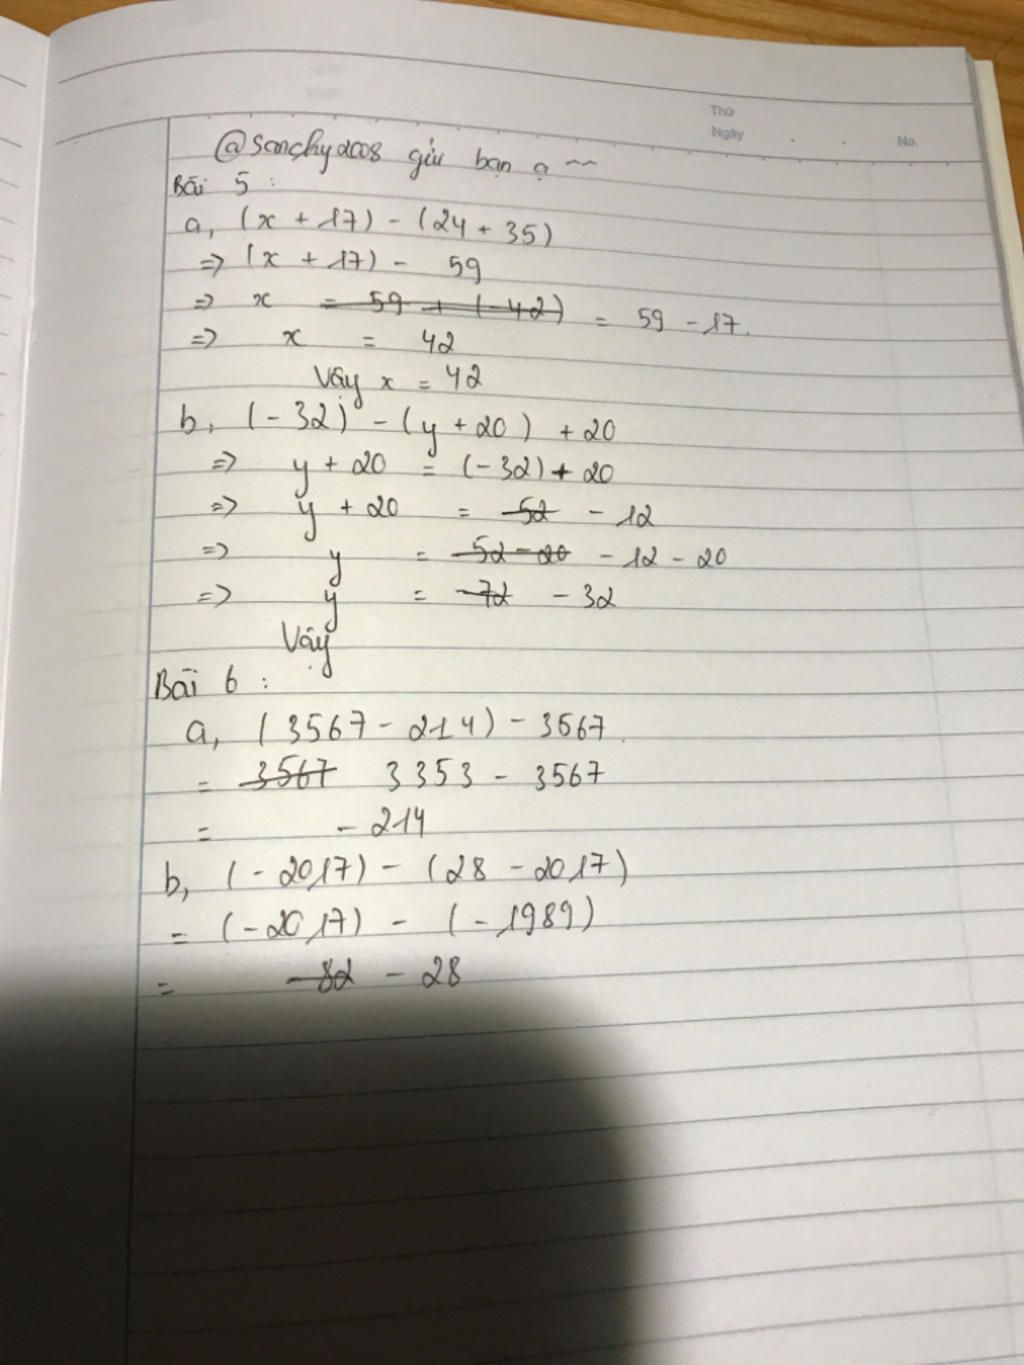 Thứ
Ngày
No.
@sanchy2008 gửi bạn ạ ~
Bài 5 :
a, (x + 17) - (24 + 35)
=> (x + 17) - 59
=> x = 59 + (-42) = 59 - 17.
=> x = 42
Vậy x = 42
b, (-32) - (y + 20) + 20
=> y + 20 = (-32) + 20
=> y + 20 = 52 - 12
=> y = 52 - 20 - 12 - 20
=> y = -72 - 32
Vậy
Bài 6 :
a, (3567 - 214) - 3567.
= 3567 3353 - 3567
= - 214
b, (-2017) - (28 - 2017)
= (-2017) - (-1989)
= -82 - 28